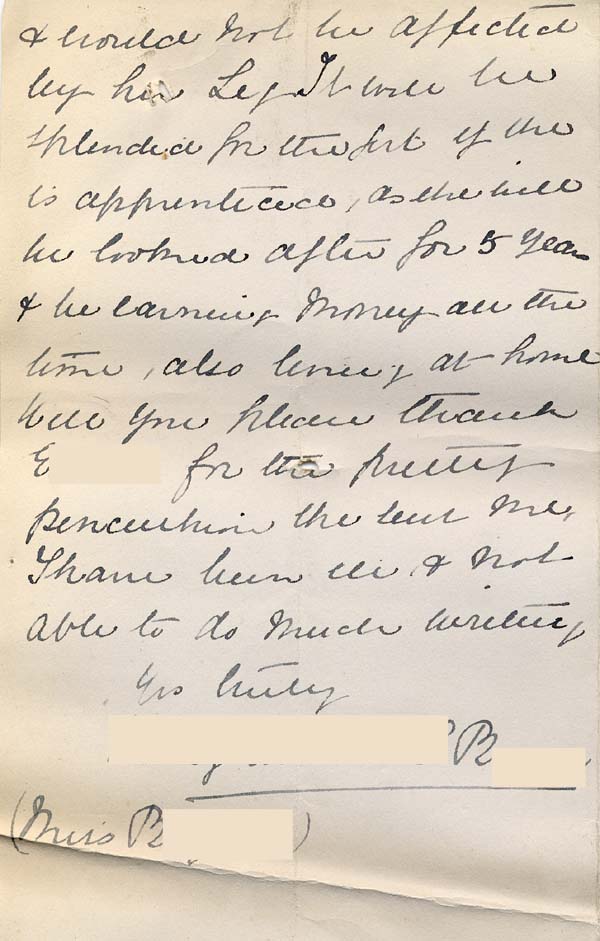 & would not be affected
by her Leg It will be
splendid for the girl if she
is apprenticed, as she will
be looked after for 5 years
& be earning money all the
time, also living at home
Will you please thank
E for the pretty
pincushion she sent me,
I have been ill & not
able to do much writing
Yrs truly
B
(Miss B )